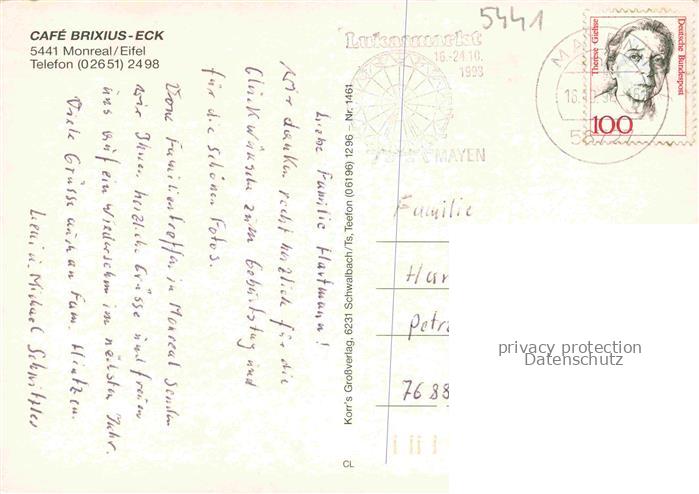 CAFÉ BRIXIUS-ECK
5441 Monreal/Eifel
Telefon (02651) 2498
5441
Lukasmarkt
16.-24.10.
1993
MAYEN
Deutsche Bundespost
Therese Giehse
100
Liebe Familie Hartmann!
Wir danken recht herzlich für die
Glückwünsche zum Geburtstag und
für die schönen Fotos.
Vom Familientreffen in Monreal senden
wir Ihnen herzliche Grüsse und freuen
uns auf ein Wiedersehn im nächsten Jahr.
Viele Grüsse auch an Fam. Hintzen.
u. Michael
Korr's Großverlag, 6231 Schwalbach/Ts, Teefon (06196) 1296 - Nr. 1461
Familie
Har
Petr
7688
CL
privacy protection
Datenschutz